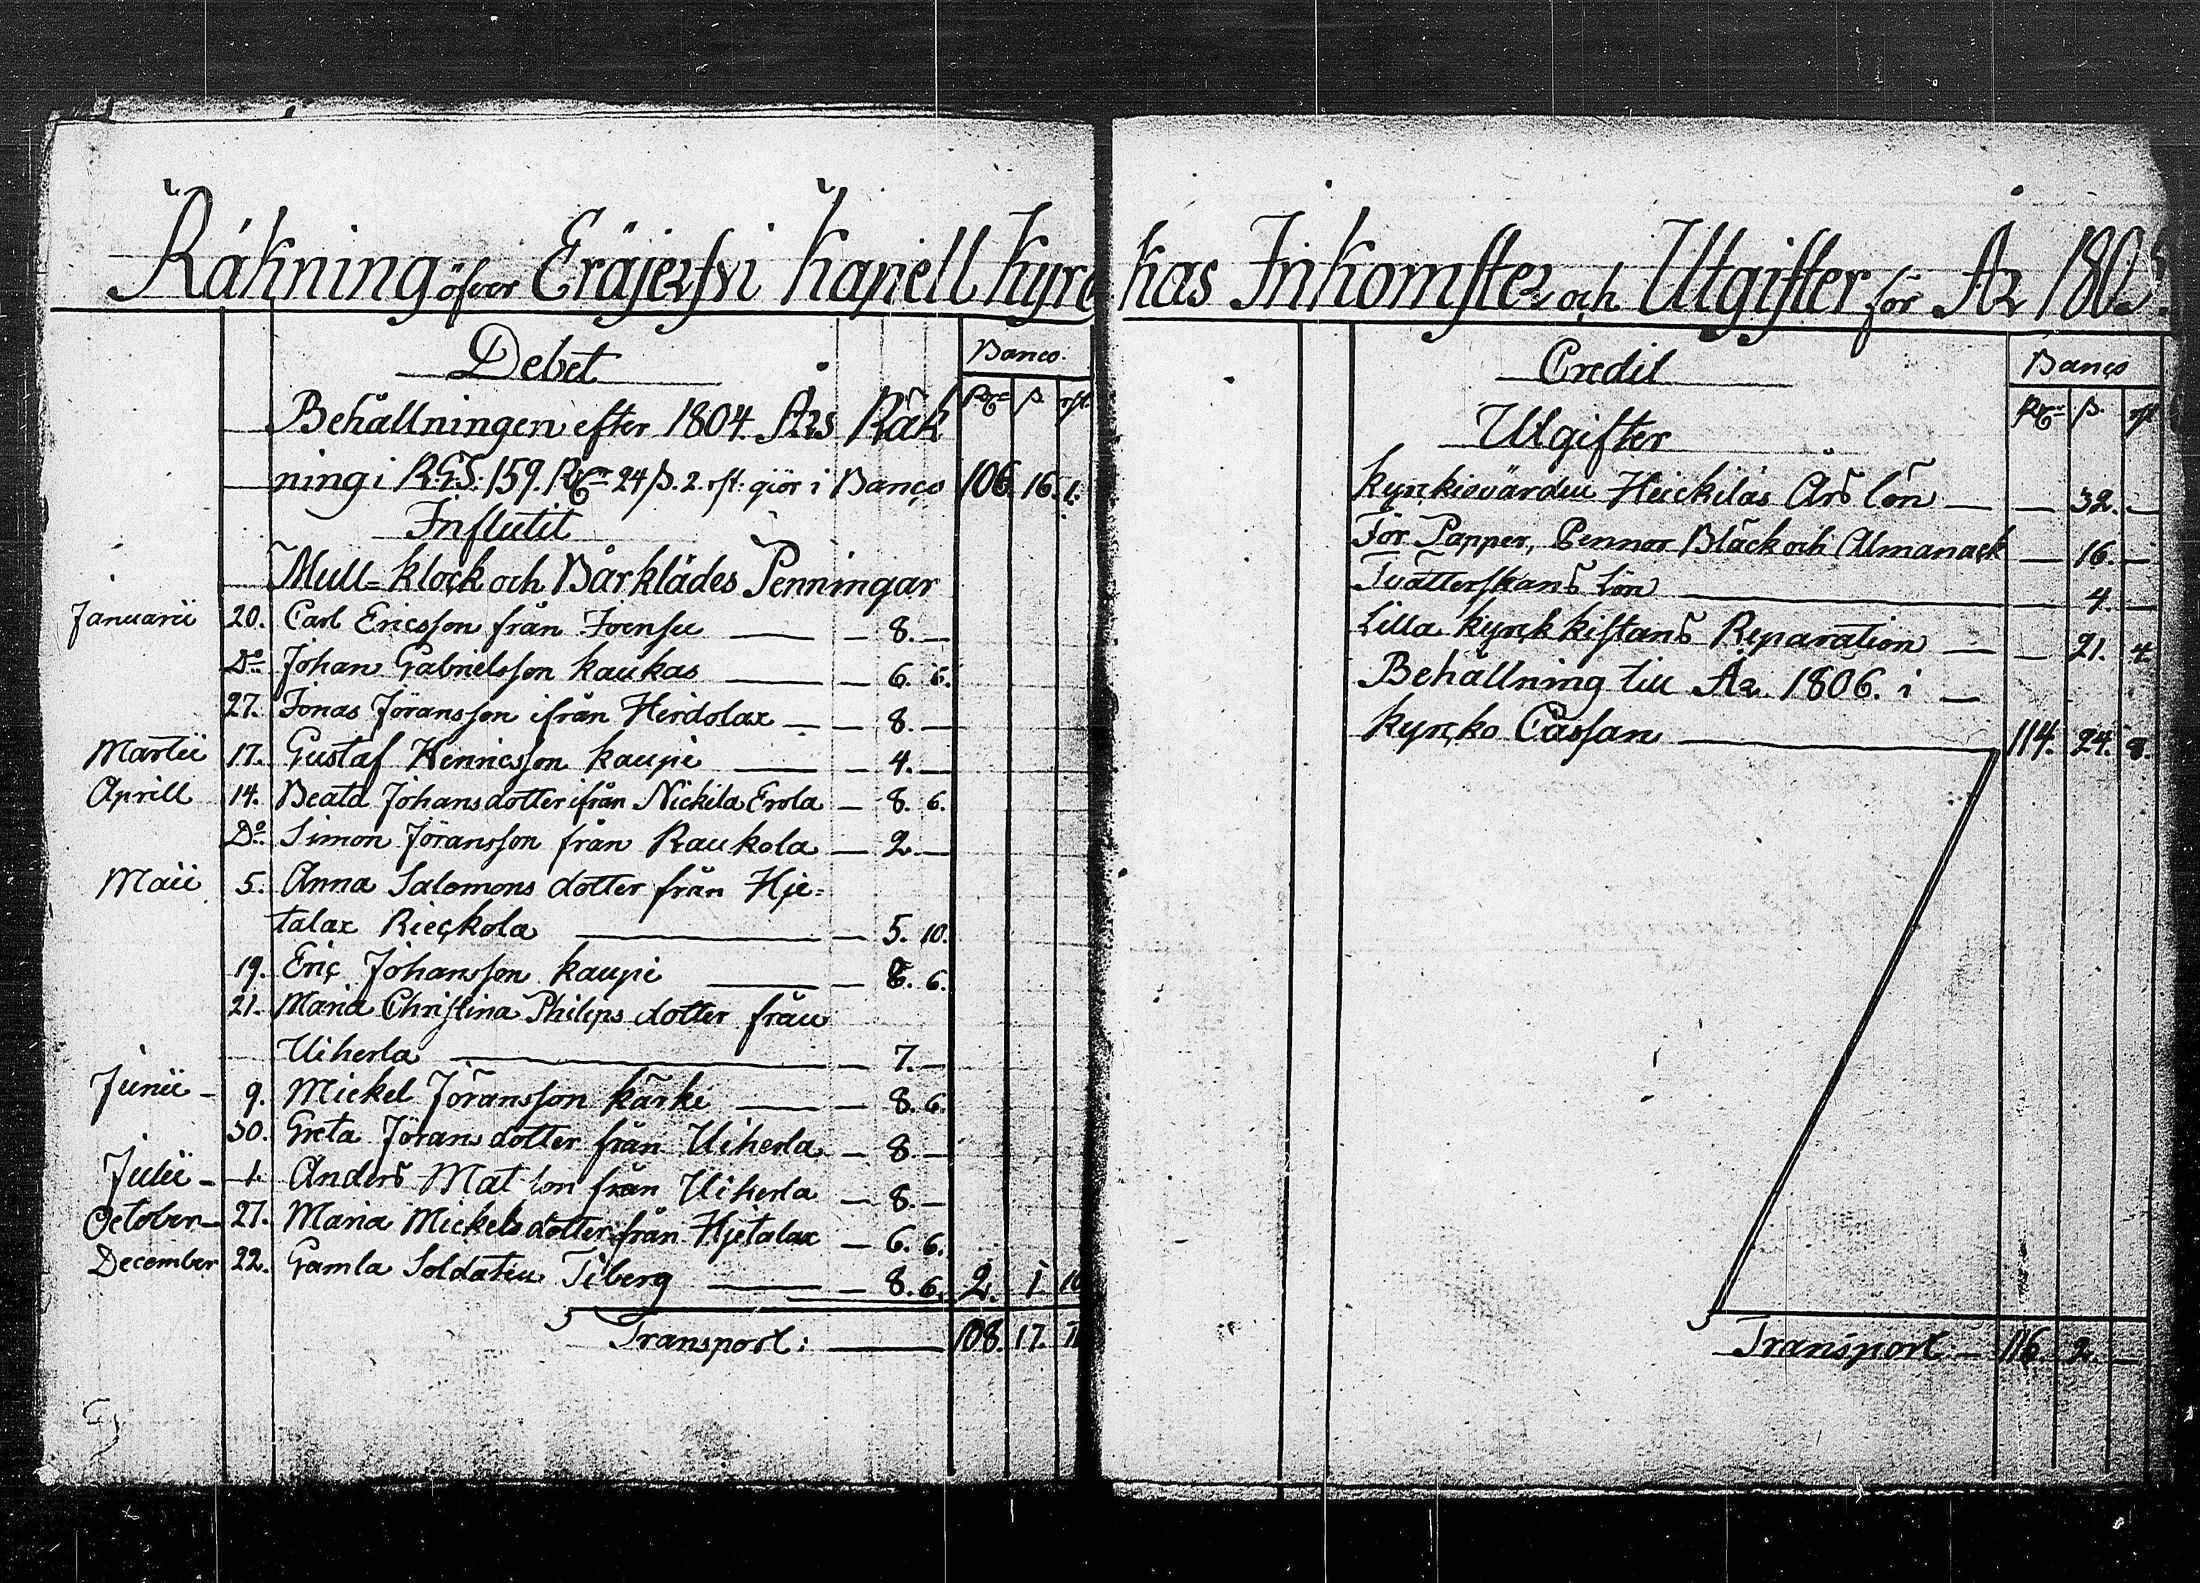 Räkning öfver Eräjerfvi Kapell Kyrc kas Inkomster och Utgifter för År 1805.
Debet
Banco.
Rdr ß. rst.
Behållningen efter 1804. Års Räk
ning i R.G.S: 159. Rdr 24 ß. 2. rst: giör i Banco 106. 16. 1.
Influtit
Mull= Klock och Bårklädes Penningar
Januarii 20. Carl Ericsson från Joensu — 8. —
Do Johan Gabrielsson Kaukas — 6. 6.
27. Jonas Jöransson ifrån Heidolax — 8. —
Martii 17. Gustaf Henricsson Kaupi — 4. —
Aprill 14. Beata Johansdotter ifrån Nickila Erola — 8. 6.
Do Simon Jöransson från Raukola — 2. —
Maii 5. Anna Salomons dotter från Hje=
talax Rieckola — 5. 10.
19. Eric Johansson Kaupi — 8. 6.
21. Maria Christina Philips dotter från
Uiherla — 7. —
Junii — 9. Mickel Jöransson Kärki — 8. 6.
30. Greta Jörans dotter från Uiherla — 8. —
Julii — 1. Anders Mat son från Uiherla — 8. —
October — 27. Maria Mickelsdotter från Hjetalax — 6. 6.
December 22. Gamla Soldaten Tiberg — 8. 6. 2. 1. 10
Transport: — 108. 17. 11
Credit
Banco
Rdr ß. rst
Utgifter
Kyrkievärden Heickiläs Års lön — — 32. —
För Papper, Pennor Bläck och Almanack — 16. —
Tvätterskans lön — 4. —
Lilla Kyrck kistans Reparation — — 21. 4
Behållning till År 1806. i —
Kyrcko Cassan — 114. 24. 8.
Transport: — 116. 2. —